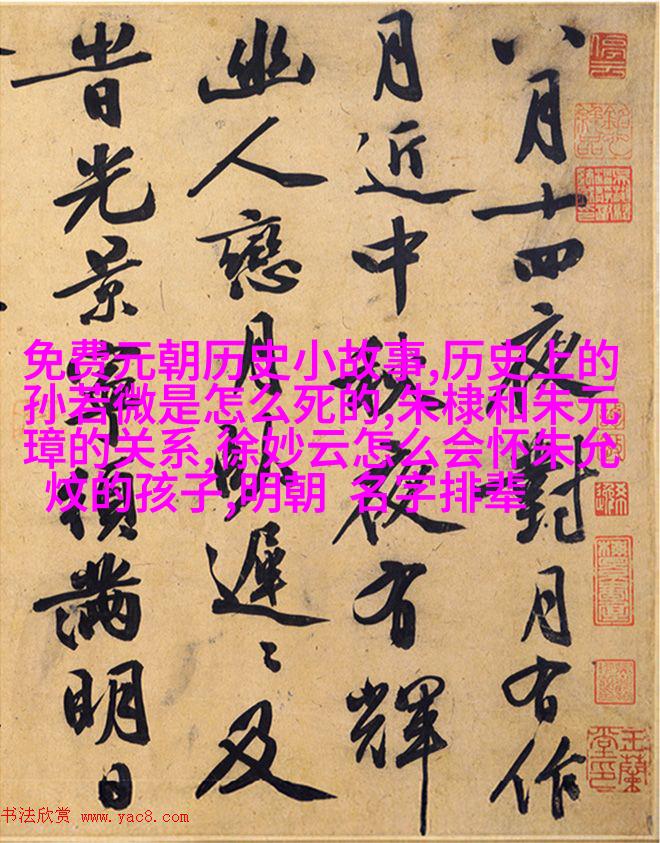 八月十四夜對月有作
月近中秋夜有輝
幽人戀月臥遲〻及
旹光景寧須滿明日
免费元朝历史小故事,历史上的
孙若微是怎么死的,朱棣和朱元
璋的关系,徐妙云怎么会怀朱允
炆的孩子,明朝 名字排辈
停云
玉蘭堂印
书法欣赏 www.yac8.com